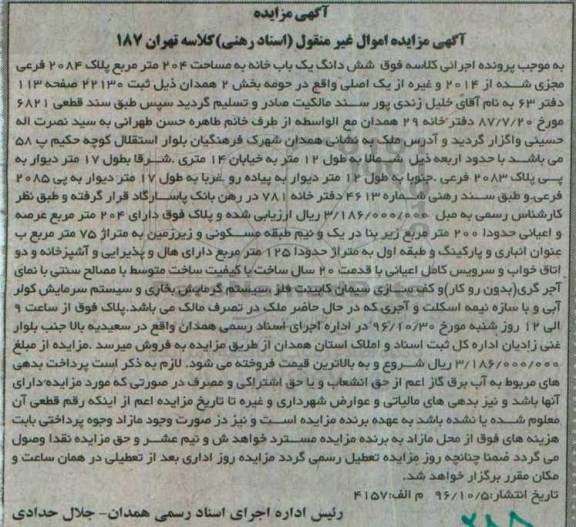 آگهی مزایده
آگهی مزایده اموال غیر منقول (اسناد رهنی) کلاسه تهران ۱۸۷
به موجب پرونده اجرائی کلاسه فوق شش دانگ یک باب خانه به مساحت ۲۰۴ متر مربع پلاک ۲۰۸۴ فرعی
مجزی شده از ۲۰۱۴ و غیره از یک اصلی واقع در حومه بخش ۲ همدان ذیل ثبت ۲۲۱۳۰ صفحه ۱۱۳
دفتر ۶۳ به نام آقای خلیل زندی پور سند مالکیت صادر و تسلیم گردید سپس طبق سند قطعی ۶۸۲۱
مورخ ۸۷/۷/۲۰ دفتر خانه ۲۹ همدان مع الواسطه از طرف خانم طاهره حسن طهرانی به سید نصرت اله
حسینی واگزار گردید و آدرس ملک به نشانی همدان شهرک فرهنگیان بلوار استقلال کوچه حکیم پ ۵۸
می باشد با حدود اربعه ذیل شمالا به طول ۱۲ متر به خیابان ۱۴ متری .شرقا بطول ۱۷ متر دیوار به
پی پلاک ۲۰۸۳ فرعی .جنوبا به طول ۱۲ متر دیوار به پیاده رو .غربا به طول ۱۷ متر دیوار به پی ۲۰۸۵
فرعی.و طبق سند رهنی شماره ۴۶۱۳ دفتر خانه ۷۸۱ در رهن بانک پاسارگاد قرار گرفته و طبق نظر
کارشناس رسمی به مبل ۳/۱۸۶/۰۰۰/۰۰۰ ریال ارزیابی شده و پلاک فوق دارای ۲۰۴ متر مربع عرصه
و اعیانی حدودا ۲۰۰ متر مربع زیر بنا در یک و نیم طبقه مسکونی و زیرزمین به متراژ ۷۵ متر مربع ب
عنوان انباری و پارکینگ و طبقه اول به متراژ حدودا ۱۲۵ متر مربع دارای هال و پذیرایی و آشپزخانه و دو
اتاق خواب و سرویس کامل اعیانی با قدمت ۲۰ سال ساخت با کیفیت ساخت متوسط با مصالح سنتی با نمای
آجر گری(بدون رو کار)و کف سازی سیمان کابینت فلز سیستم گرمایش بخاری و سیستم سرمایش کولر
آبی و با سازه نیمه اسکلت و آجری که در حال حاضر ملک در تصرف مالک می باشد.پلاک فوق از ساعت ۹
الی ۱۲ روز شنبه مورخ ۹۶/۱۰/۳۰ در اداره اجرای اسناد رسمی همدان واقع در سعیدیه بالا جنب بلوار
غنی زادیان اداره کل ثبت اسناد و املاک استان همدان از طریق مزایده به فروش میرسد .مزایده از مبلغ
۳/۱۸۶/۰۰۰/۰۰۰ ریال شروع و به بالاترین قیمت فروخته می شود. لازم به ذکر است پرداخت بدهی
های مربوط به آب برق گاز اعم از حق انشعاب و یا حق اشتراکی و مصرف در صورتی که مورد مزایده دارای
آنها باشد و نیز بدهی های مالیاتی و عوارض شهرداری و غیره تا تاریخ مزایده اعم از اینکه رقم قطعی آن
معلوم شده یا نشده باشد به عهده برنده مزایده است و نیز در صورت وجود مازاد وجوه پرداختی بابت
هزینه های فوق از محل مازاد به برنده مزایده مسترد خواهد ش و نیم عشر و حق مزایده نقدا وصول
می گردد ضمنا چنانچه روز مزایده تعطیل رسمی گردد مزایده روز اداری بعد از تعطیلی در همان ساعت و
مکان مقرر برگزار خواهد شد.
تاریخ انتشار:۹۶/۱۰/۵ م الف:۴۱۵۷
رئیس اداره اجرای اسناد رسمی همدان- جلال حدادی